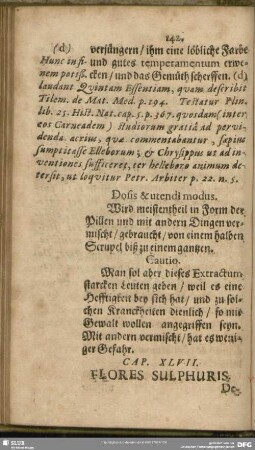 142.
(d) versüngern / ihm eine löbliche Farbe
Hunc in fi- und gutes temperamentum erwe-
nem potiss. cken / und das Gemüth scherffen. (d)
laudant Quintam Essentiam, quam describit
Tilem. de Mat. Med. p. 194. Testatur Plin.
lib. 25. Hist. Nat. cap. 5. p. 367. quosdam (inter
eos Carneadem) studiorum gratiâ ad pervi-
denda acrius, quæ commentabantur, sapius
sumptitasse Elleborum; & Chrysippus ut ad in-
ventiones sufficeret, ter helleboro animum de-
tersit, ut loqvitur Petr. Arbiter p. 22. n. 5.
Dosis & utendi modus.
Wird meistentheil in Form der
Pillen und mit andern Dingen ver-
mischt / gebraucht / von einem halben
Scrupel biß zu einem gantzen.
Cautio.
Man sol aber dieses Extractum
starcken Leuten geben / weil es eine
Hefftigkeit bey sich hat / und zu sol-
chen Kranckheiten dienlich / so mit
Gewalt wollen angegriffen seyn.
Mit andern vermischt / hat es weni-
ger Gefahr.
CAP. XLVII.
FLORES SULPHURIS.
De-